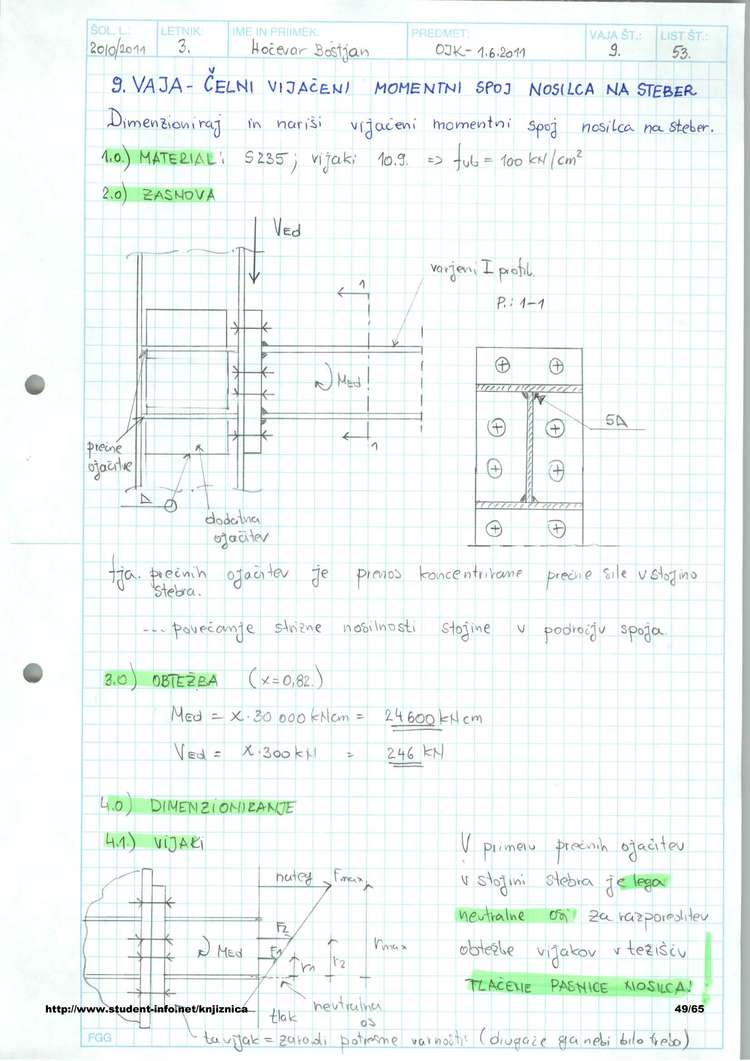 ŠOL. L.: LETNIK: IME IN PRIIMEK: PREDMET: VAJA ŠT.: LIST ŠT.:
2010/2011 3. Hočevar Boštjan OJK - 1.6.2011 9. 53.
9. VAJA - ČELNI VIJAČENI MOMENTNI SPOJ NOSILCA NA STEBER
Dimenzioniraj in nariši vijačeni momentni spoj nosilca na steber.
1.0.) MATERIAL: S235; vijaki 10.9. => fub = 100 kN/cm²
2.0) ZASNOVA
VEd
varjeni I profil.
1
P.: 1-1
MEd
5
1
prečne
ojačitve
dodatna
ojačitev
fja. prečnih ojačitev je prenos koncentrirane prečne sile v stojino
stebra.
... povečanje strižne nosilnosti stojine v področju spoja
3.0) OBTEŽBA (x=0,82.)
MEd = x·30 000 kNcm = 24600 kNcm
VEd = x·300 kN = 246 kN
4.0) DIMENZIONIRANJE
4.1.) VIJAKI
V primeru prečnih ojačitev
v stojini stebra je lega
neutralne osi za razporeditev
obtežbe vijakov v težišču
TLAČENE PASNICE NOSILCA!
nateg Fmax
F2
F1
MEd
r1 r2 rmax
neutralna
os
tlak
http://www.student-info.net/knjiznica 49/65
FGG
ta vijak = zaradi potresne varnosti (drugače ga nebi bilo treba)